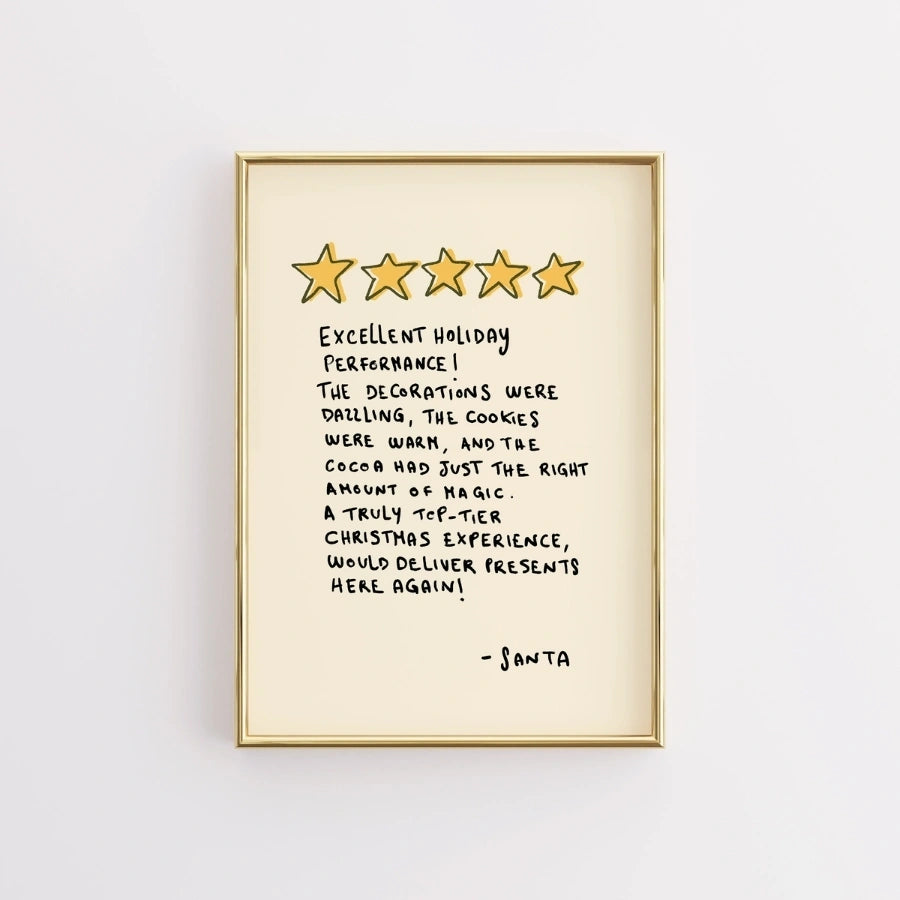 EXCELLENT HOLIDAY
PERFORMANCE!
THE DECORATIONS WERE
DAZZLING, THE COOKIES
WERE WARM, AND THE
COCOA HAD JUST THE RIGHT
AMOUNT OF MAGIC.
A TRULY TOP-TIER
CHRISTMAS EXPERIENCE,
WOULD DELIVER PRESENTS
HERE AGAIN!
- SANTA